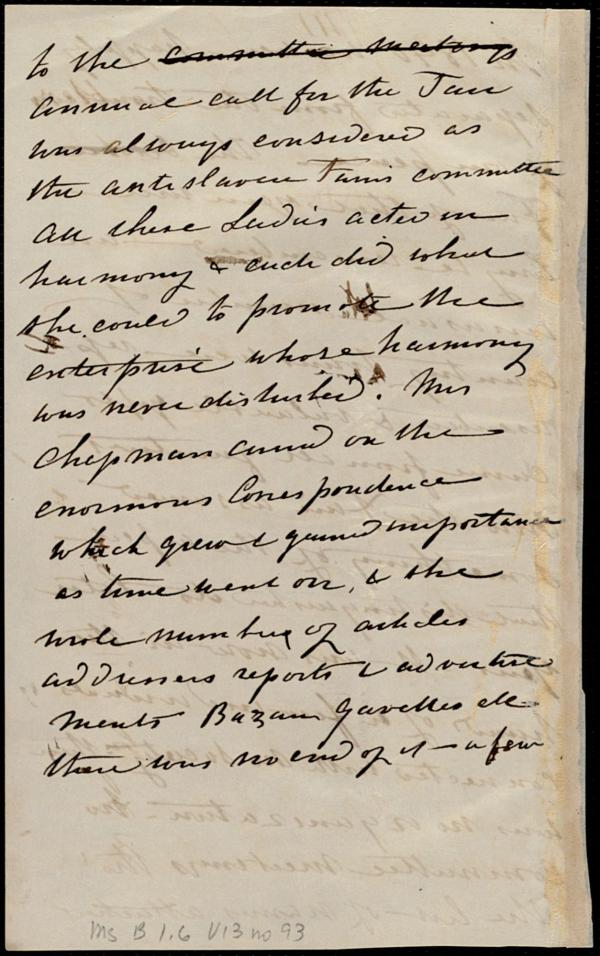 to the committee meetings
annual call for the Fair
was always considered as
the antislavery Fair's committee
All these Ladies acted in
harmony & each did what
she could to promote the
enterprise whose harmony
was never disturbed. Mrs
Chapman carried on the
enormous Correspondence
which grew & gained importance
as time went on, & she
wrote number of articles
addresses reports & advertise
ments Bazaar Gazettes etc
there was no end of it — a few
Ms B 1.6 V13 no 93